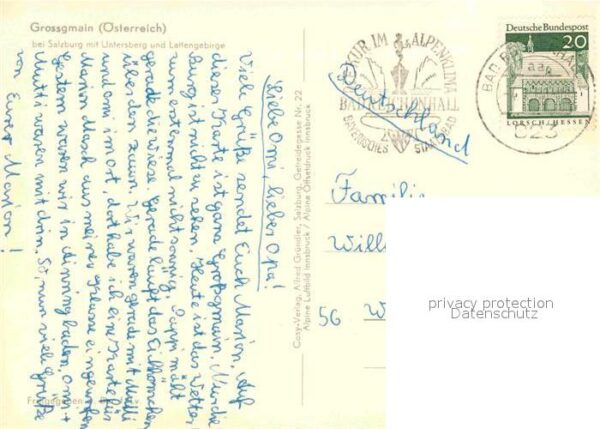 Grossgmain (Österreich)
bei Salzburg mit Untersberg und Lattengebirge
Liebe Omi, lieber Opa!
Viele Grüße sendet Euch Marion, Auf
dieser Karte ist ganz Großgmain, Nur die
Burg ist nicht zu sehen. Heute ist das Wetter
zum erstenmal nicht sonnig. Pappi mäht
gerade die Wiese. Gerade läuft das Eichhörnchen
über den Zaun. Wir waren gerade mit Mutti
und omi im ort, dort habe ich ein
Marion Musch aus meiner Klasse eingeworfen
Gestern waren wir in baden, Omi +
Mutti waren mit drin. So nun viele Grüße
von Eurer Marion!
Cosy-Verlag, Alfred Gründler, Salzburg, Getreidegasse Nr. 22
Alpine Luftbild Innsbruck / Alpine Offsetdruck Innsbruck
KUR IM ALPENKLIMA
BAD REICHENHALL
BAYERISCHES STAATSBAD
Deutschland
BAD
823
Deutsche Bundespost
20
LORSCH/HESSEN
Familie
Will
56 W
privacy protection
Datenschutz